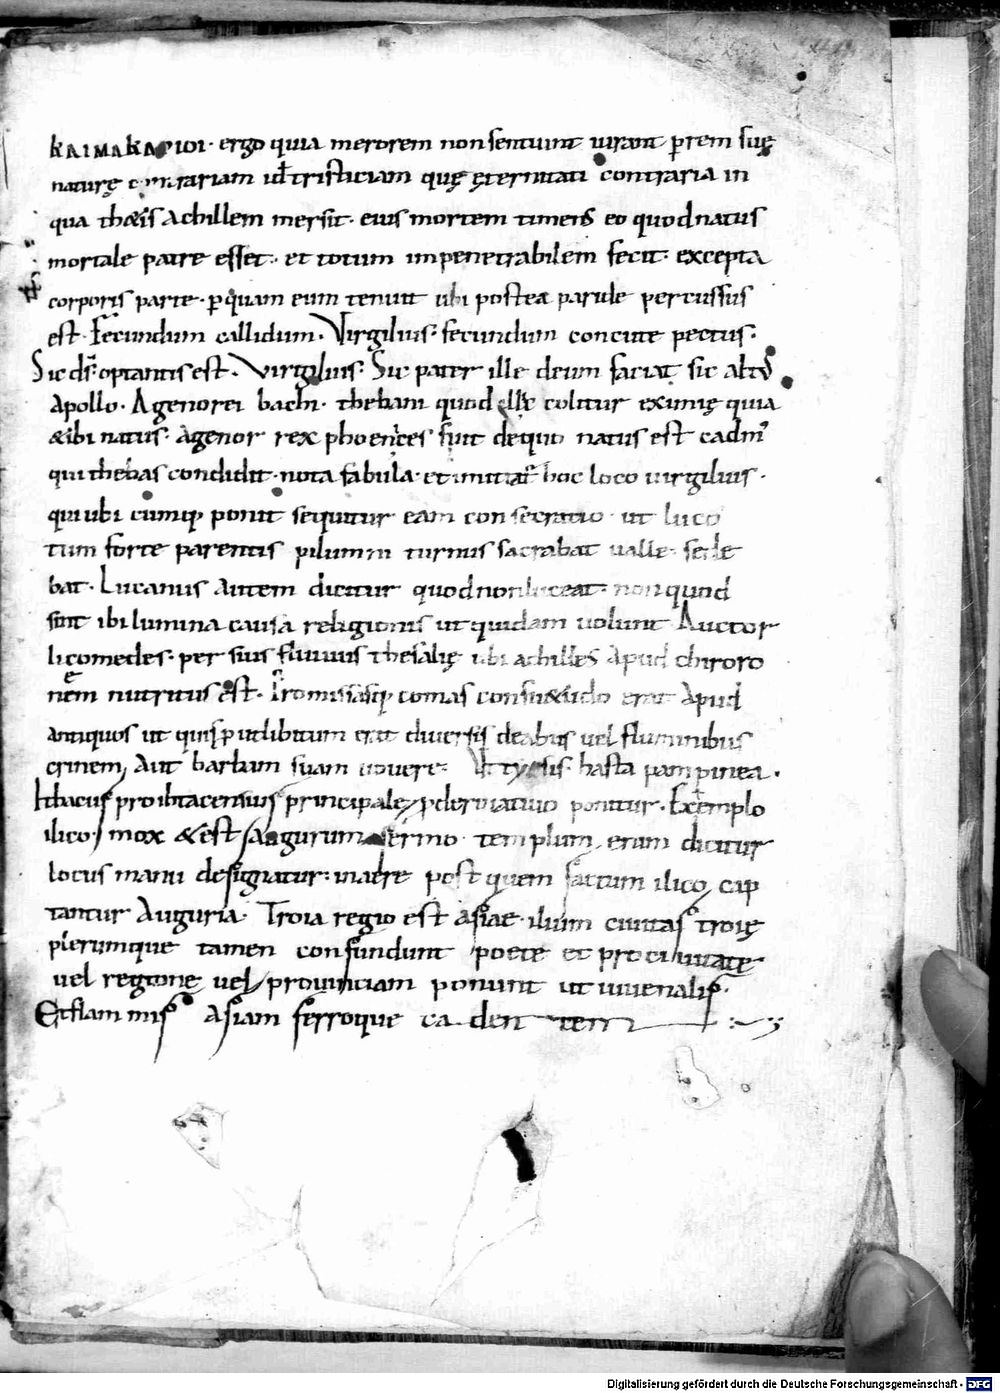 KAIMAKAPIOI · ergo quia merorem non sentiunt iurant p̱rem suę
naturę contrariam ul̃ tristiciam quę ęternitati contraria in
qua th&is achillem mersit · eius mortem timens eo quod natus
mortale patre esset · et totum impenetrabilem fecit · excepta
corporis parte · ꝑ quam eum tenuit ubi postea paride percussus
est · Secundum callidum · Virgilius · secundum concute pectus ·
Sic dr̃ optantis est · Virgilius · Sic pater ille deum faciat sic altus
apollo · Agenorei bachi · thebani quod illic colitur eximię quia
&ibi natus · Agenor rex phoenices fuit de quo natus est cadm᾽
qui thebas condidit · nota fabula · et imitat᷑ hoc loco virgilius ·
qui ubi cumq; ponit sequitur eam consecratio · ut luco
tum forte parentis pilumni turnus sacrabat ualle sede
bat · Lucanus autem dicitur quod non luceat · non quod
sint ibi lumina causa religionis ut quidam uolunt Auctor
licomedes · per sius fluuius thesalię ubi achilles apud chiro
nem nutritus est · Promissasq; comas consu&udo erat apud
antiquos ut quisꝑ utlibitum erat diuersis deabus uel fluminibus
crinem, aut barbam suam uouere · Ut tyrsis hasta pampinea ·
Ithacus pro ithacensius principale, ꝓ deriuatiuo ponitur · Exemplo
ilico / mox &est / augurum sermo · templum, enim dicitur
locus manu designatur : in aere post quem factum ilico, cap
tantur auguria · Troia regio est asiae · ilium ciuitas troię
plerumque tamen confundunt poete et pro ciuitate
uel regione uel / prouinciam ponunt ut iuuenalis ·
Et flammis asiam ferroque cadentem
Digitalisierung gefördert durch die Deutsche Forschungsgemeinschaft - DFG